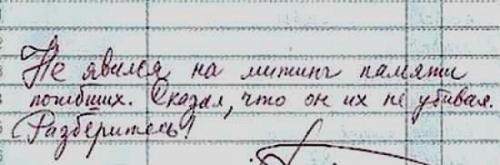 Не явился на митинг памяти
погибших. Сказал, что он их не убивал.
Разберитесь!